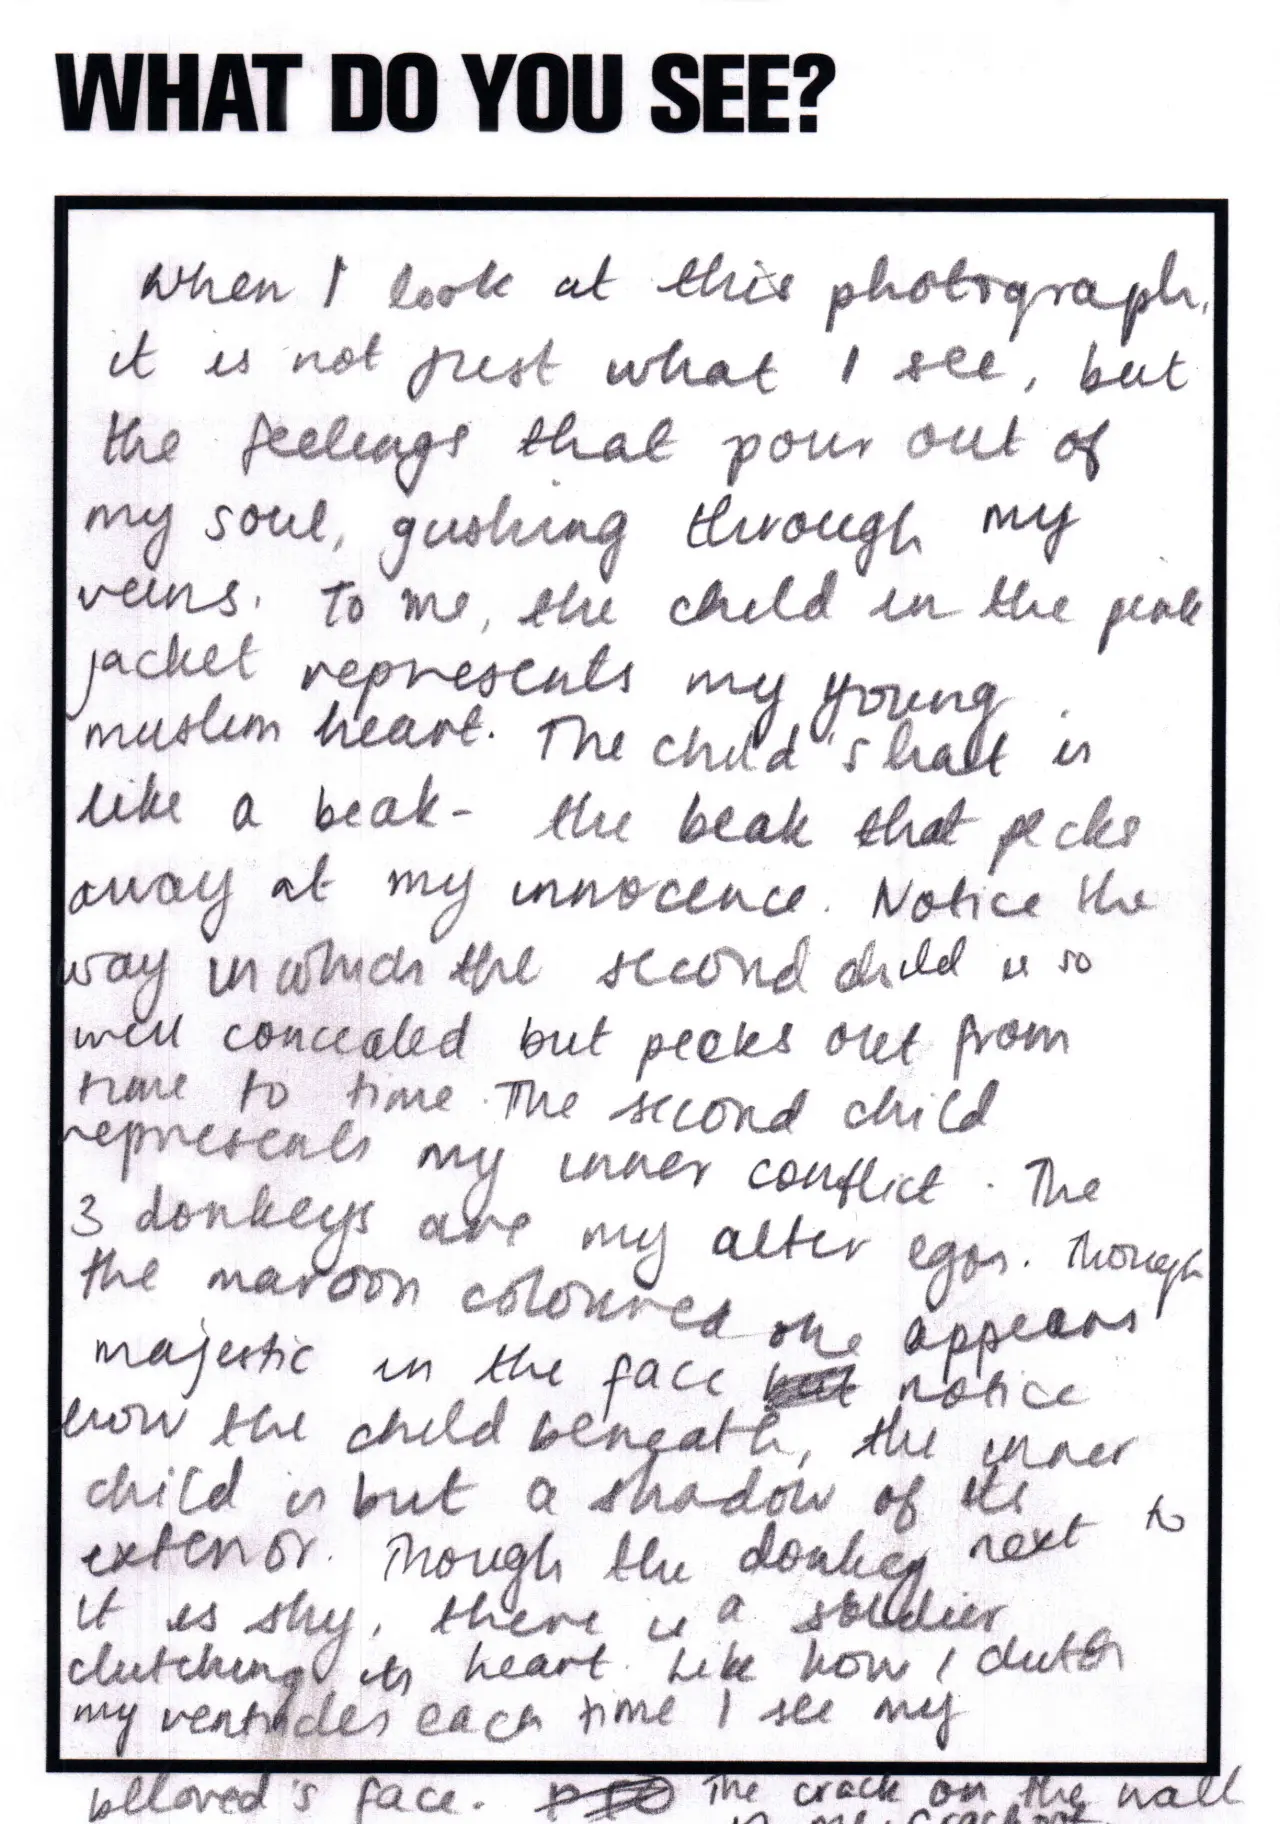 WHAT DO YOU SEE?
When I look at this photograph,
it is not just what I see, but
the feelings that pour out of
my soul, gushing through my
veins. To me, the child in the pink
jacket represents my young
muslim heart. The child's hat is
like a beak- the beak that pecks
away at my innocence. Notice the
way in which the second child is so
well concealed but peeks out from
time to time. The second child
represents my inner conflict. The
3 donkeys are my alter egos. Though
the maroon coloured one appears
majestic in the face notice
how the child beneath, the inner
child is but a shadow of its
exterior. Though the donkey next to
it is shy, there is a soldier
clutching its heart. Like how I clutch
my ventricles each time I see my
beloved's face. The crack on the wall